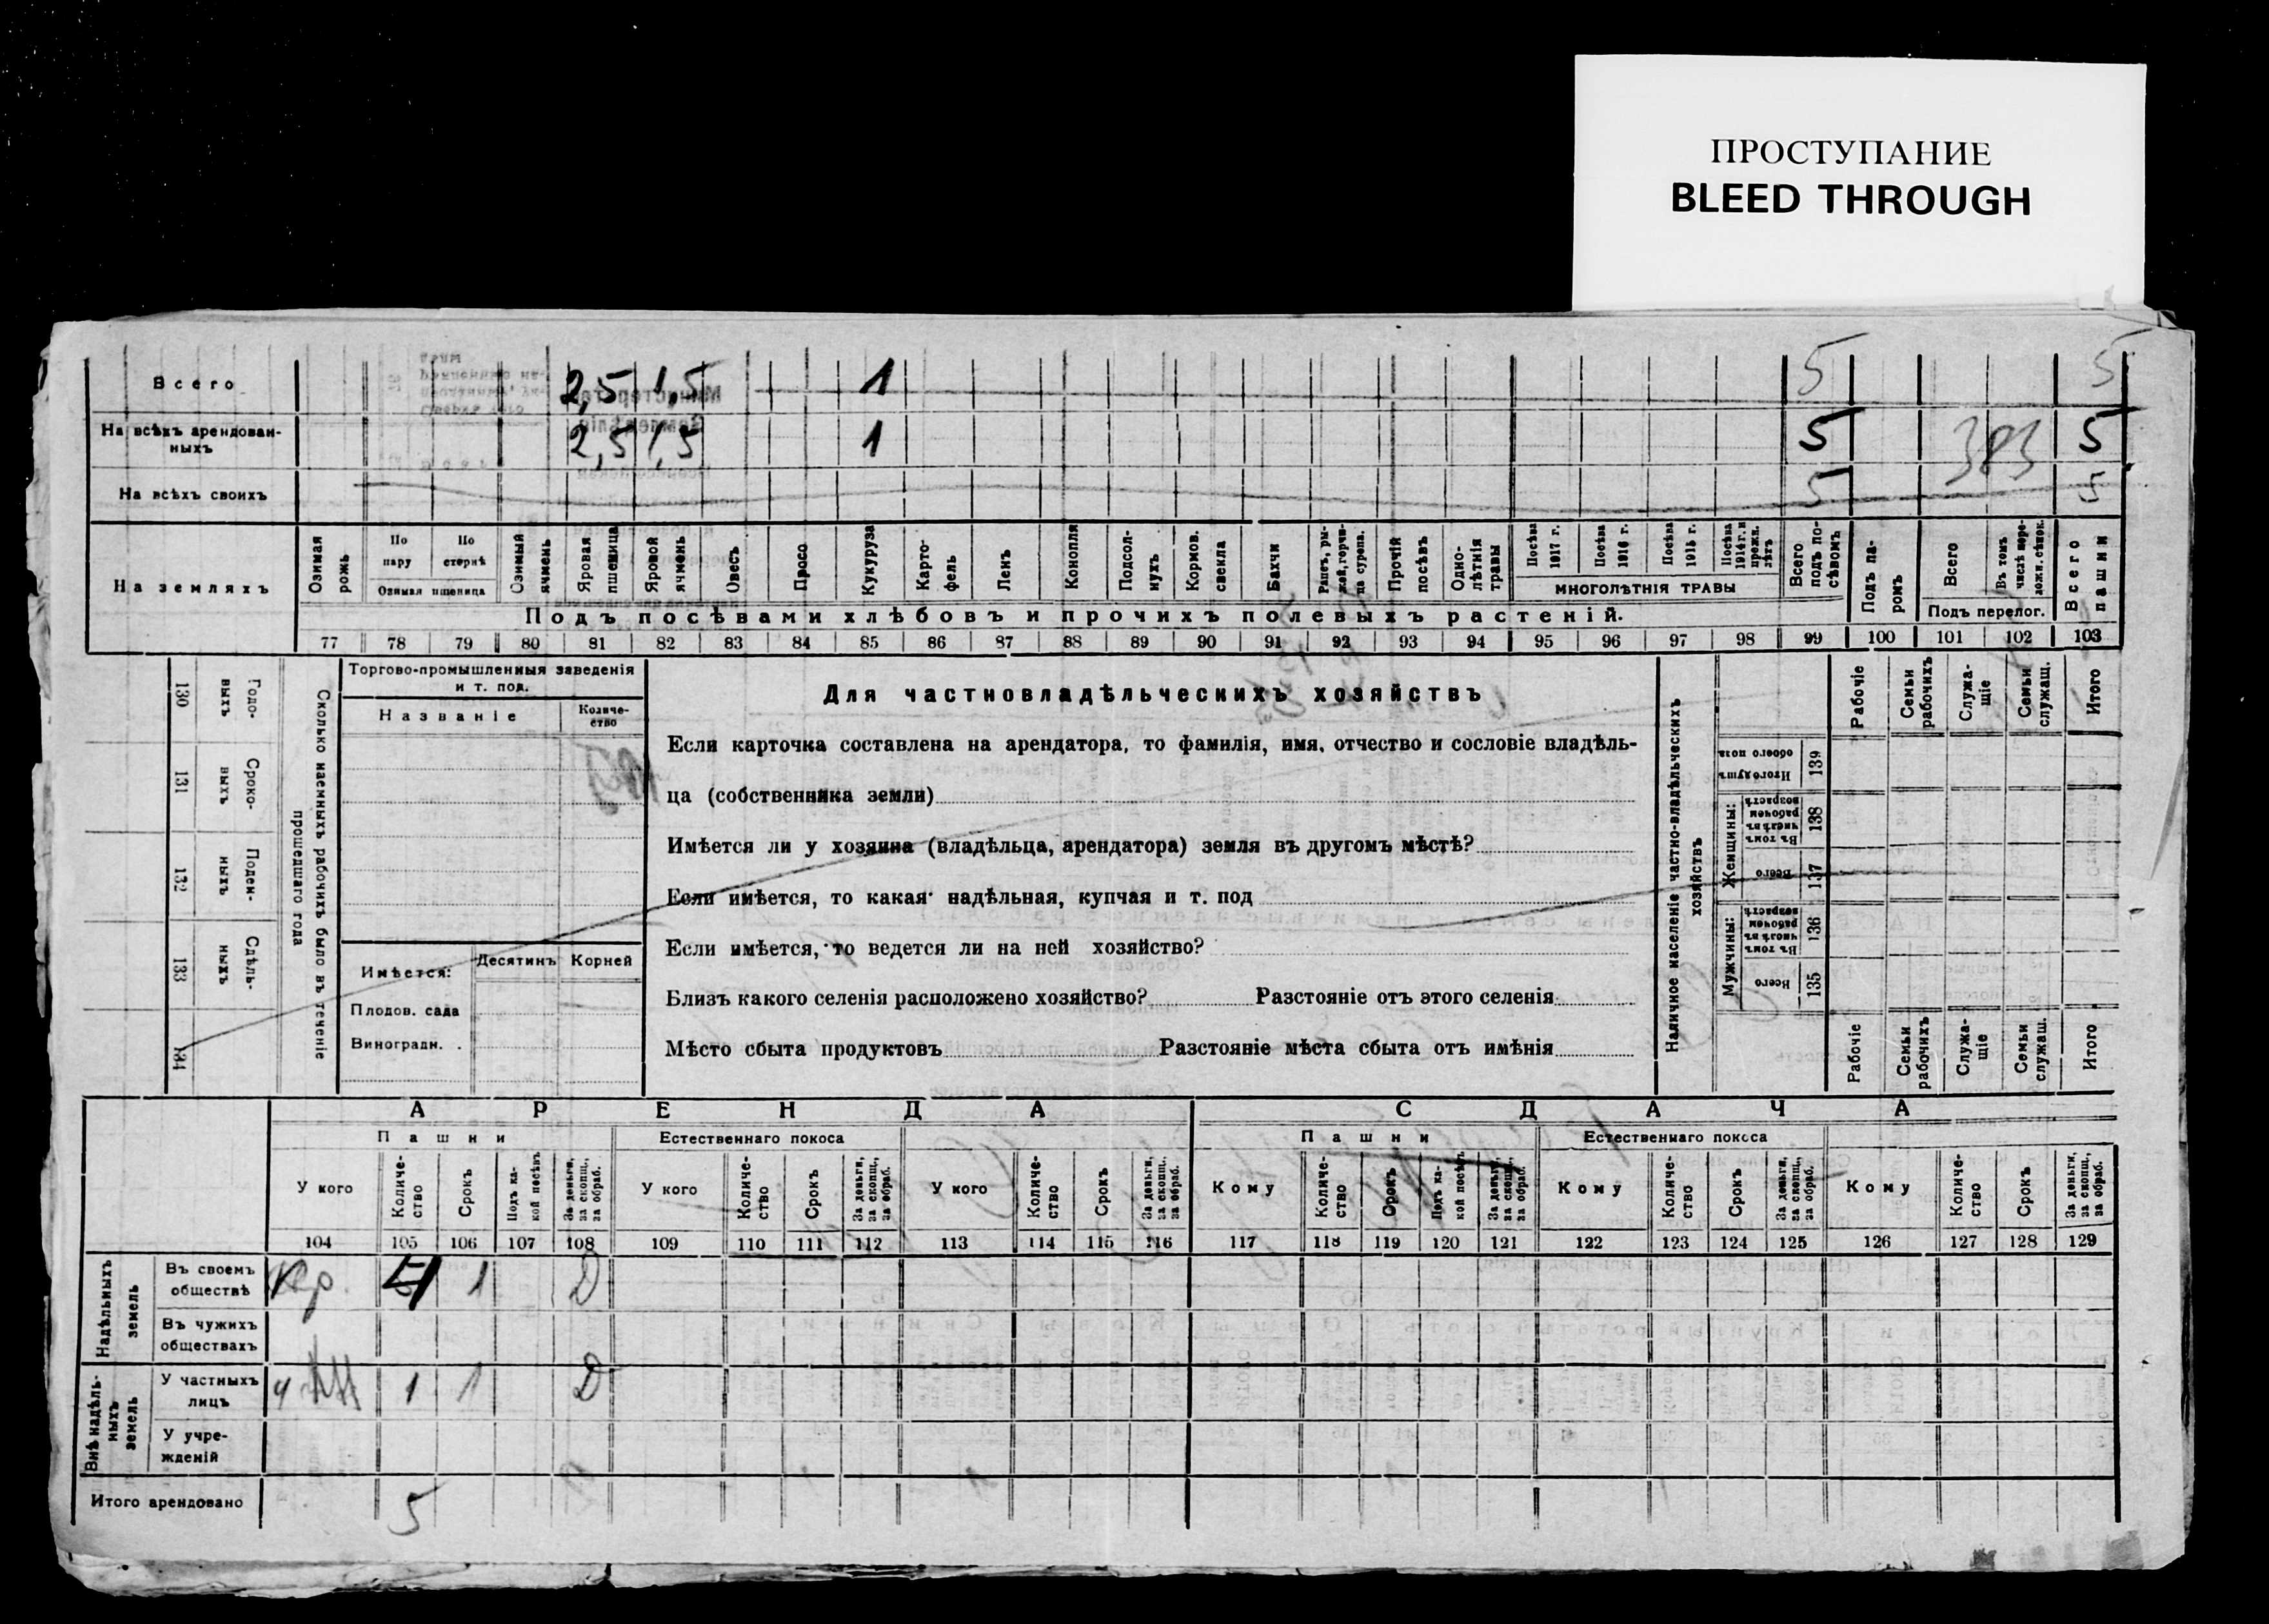 ПРОСТУПАНИЕ
BLEED THROUGH
Всего 2,5 1,5 1 5 5
На всѣхъ арендован-
ныхъ 2,5 1,5 1 5 383 5
На всѣхъ своихъ 5 5
На земляхъ
Озимая рожь
По пару
По стернѣ
Озимая пшеница
Озимый ячмень
Яровая пшеница
Яровой ячмень
Овесъ
Просо
Кукуруза
Карто-фель
Ленъ
Конопля
Подсол-нухъ
Кормов. свекла
Бахчи
Рапсъ, ры-жей, горчи-ца сурепа.
Прочій посѣвъ
Одно-лѣтнія травы
Посѣва 1917 г.
Посѣва 1916 г.
Посѣва 1915 г.
Посѣва 1914 г. и прежн. лѣтъ
МНОГОЛѢТНІЯ ТРАВЫ
Всего подъ по-сѣвомъ
Подъ па-ромъ
Всего
Въ томъ числѣ пере-ложн. сѣнок.
Подъ перелог.
Всего пашни
Подъ посѣвами хлѣбовъ и прочихъ полевыхъ растеній.
77 78 79 80 81 82 83 84 85 86 87 88 89 90 91 92 93 94 95 96 97 98 99 100 101 102 103
130 Годо-выхъ
131 Сроко-выхъ
132 Поден-ныхъ
133 Сдѣль-ныхъ
134
Сколько наемныхъ рабочихъ было въ теченіе
прошедшаго года
Торгово-промышленныя заведенія
и т. под.
Названіе
Количе-
ство
Имѣется:
Десятинъ Корней
Плодов. сада
Виноградн. .
Для частновладѣльческихъ хозяйствъ
Если карточка составлена на арендатора, то фамилія, имя, отчество и сословіе владѣль-
ца (собственника земли)
Имѣется ли у хозяина (владѣльца, арендатора) земля въ другомъ мѣстѣ?
Если имѣется, то какая надѣльная, купчая и т. под
Если имѣется, то ведется ли на ней хозяйство?
Близъ какого селенія расположено хозяйство? Разстояніе отъ этого селенія
Мѣсто сбыта продуктовъ Разстояніе мѣста сбыта отъ имѣнія
Наличное населеніе частно-владѣльческихъ
хозяйствъ
Рабочіе
Семьи рабочихъ
Служа-щіе
Семьи служащ.
Итого
Итого душъ обоего пола 139
Женщины:
Въ томъ числѣ въ рабочем возрастѣ 138
Всего 137
Мужчины:
Въ томъ числѣ въ рабочем возрастѣ 136
Всего 135
Рабочіе
Семьи рабочихъ
Служа-щіе
Семьи служащ.
Итого
АРЕНДА СДАЧА
Пашни Естественнаго покоса Пашни Естественнаго покоса
У кого
Количе-ство
Срокъ
Подъ ка-кой посѣвъ
За деньги, за скопщ., за обраб.
У кого
Количе-ство
Срокъ
За деньги, за скопщ., за обраб.
У кого
Количе-ство
Срокъ
За деньги, за скопщ., за обраб.
Кому
Количе-ство
Срокъ
Подъ ка-кой посѣвъ
За деньги, за скопщ., за обраб.
Кому
Количе-ство
Срокъ
За деньги, за скопщ., за обраб.
Кому
Количе-ство
Срокъ
За деньги, за скопщ., за обраб.
104 105 106 107 108 109 110 111 112 113 114 115 116 117 118 119 120 121 122 123 124 125 126 127 128 129
Надѣльныхъ земель
Въ своемъ
обществѣ Кр. 4 1 Д
Въ чужихъ
обществахъ
Внѣ надѣль-ныхъ земель
У частныхъ
лицъ 1 1 Д
У учре-
жденій
Итого арендовано 5